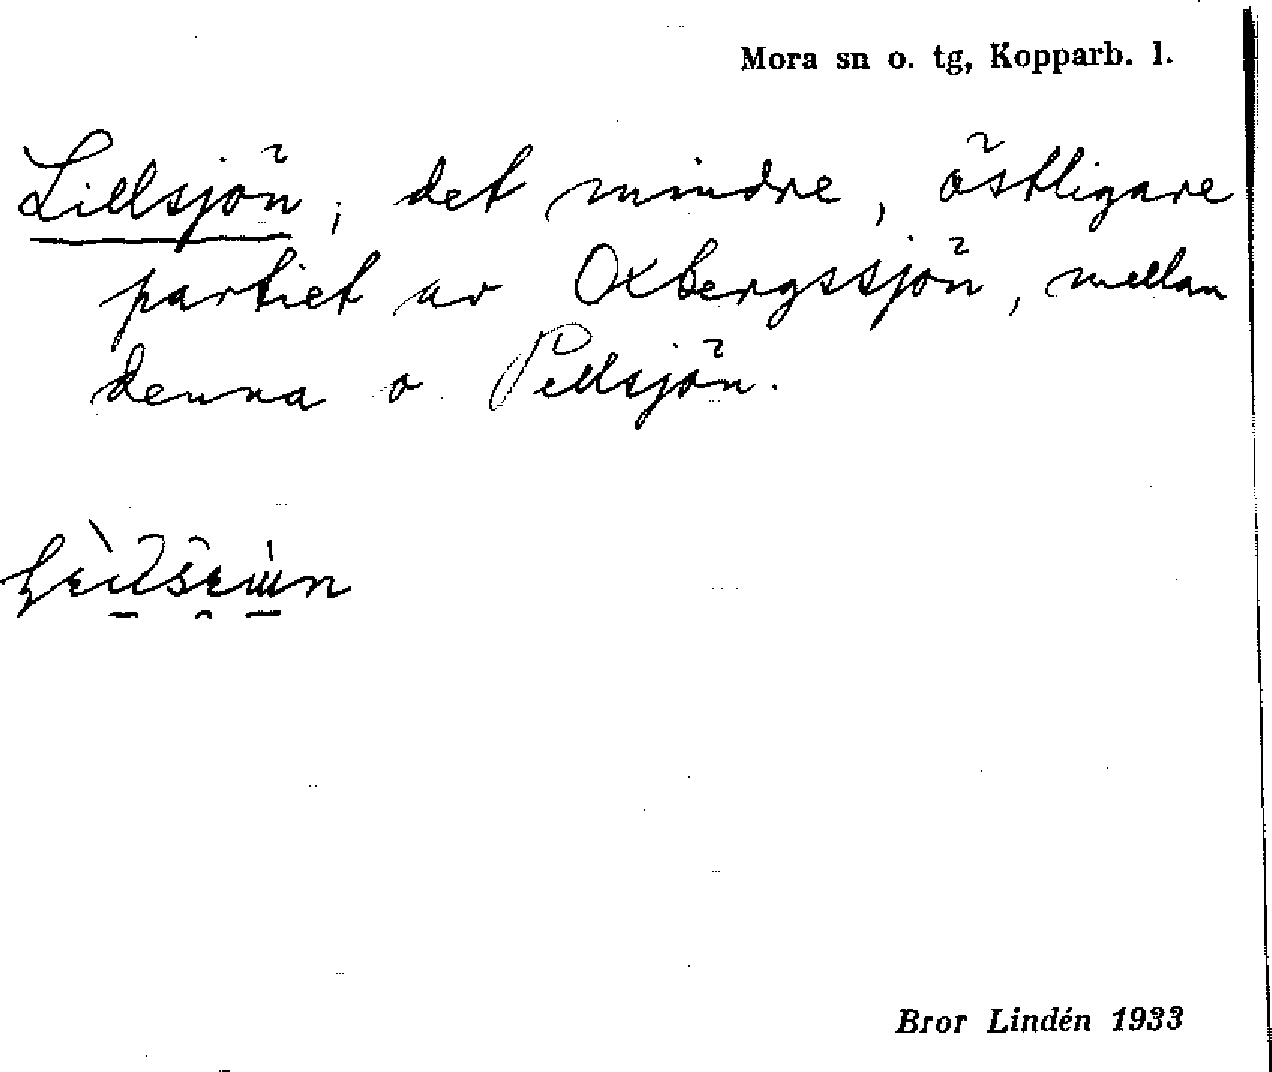 Mora sn o. tg, Kopparb. l.
Lillsjön, det mindre, östligare
partiet av Oxbergssjön, mellan
denna o Pellsjön.
Bror Lindén 1933